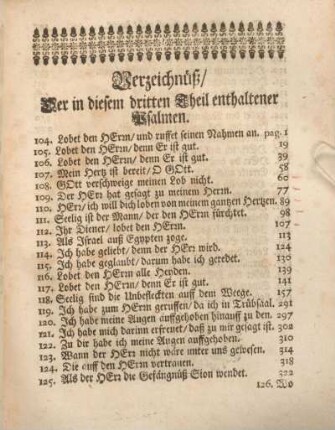 Verzeichnüß/
Der in diesem dritten Theil enthaltener
Psalmen.
104. Lobet den HErrn/ und ruffet seinen Nahmen an. pag. 1
105. Lobet den HErrn/ denn Er ist gut. 19
106. Lobet den HErrn/ denn Er ist gut. 39
107. Mein Hertz ist bereit/ O GOtt. 58
108. GOtt verschweige meinen Lob nicht. 60
109. Der HErr hat gesagt zu meinem Herrn. 77
110. HErr/ ich will dich loben von meinem gantzen Hertzen. 89
111. Seelig ist der Mann/ der den HErrn fürchtet. 98
112. Ihr Diener/ lobet den HErrn. 107
113. Als Israel auß Egypten zoge. 113
114. Ich habe geliebt/ denn der HErr wird. 124
115. Ich habe geglaubt/ darum habe ich geredet. 130
116. Lobet den HErrn alle Heyden. 139
117. Lobet den HErrn/ denn Er ist gut. 141
118. Seelig sind die Unbefleckten auff dem Weege. 157
119. Ich habe zum HErrn geruffen/ da ich in Trübsaal. 291
120. Ich habe meine Augen auffgehoben hinauff zu den. 297
121. Ich habe mich darinn erfreuet/ daß zu mir gesagt ist. 302
122. Zu dir habe ich meine Augen auffgehoben. 310
123. Wann der HErr nicht wäre unter uns gewesen. 314
124. Die auff den HErrn vertrauen. 318
125. Als der HErr die Gefängnüß Sion wendet. 322
126. Wo